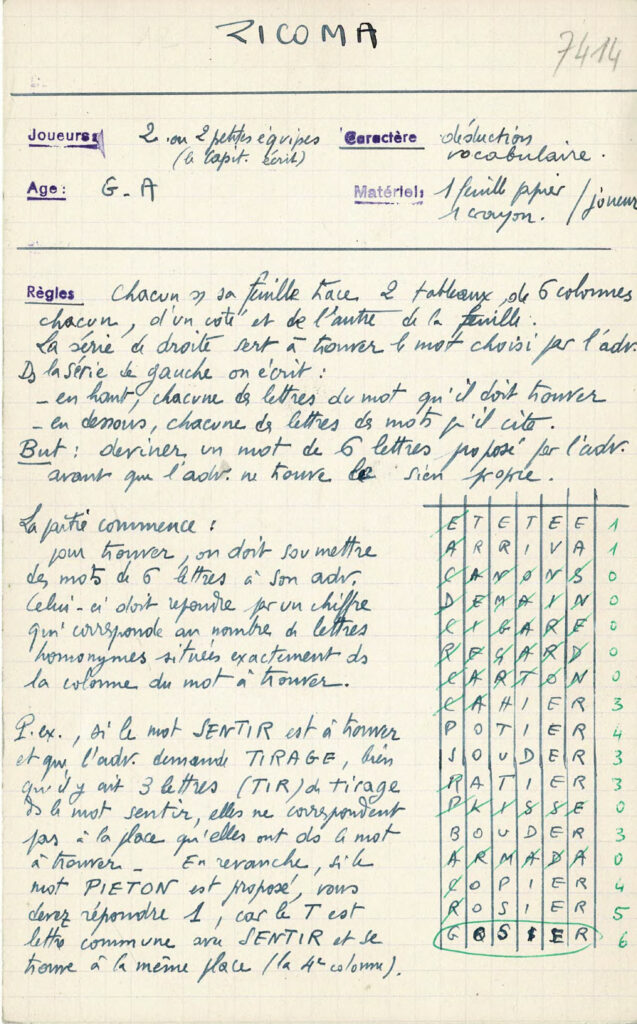 ZICOMA
7414
Joueurs: 2 ou 2 petites équipes
(le Capit. écrit)
Caractère déduction
vocabulaire.
Age: G-A
Matériel: 1 feuille papier
1 crayon. / joueur
Règles Chacun sa feuille trace 2 tableaux, de 6 colonnes
chacun, d'un coté et de l'autre de la feuille.
La série de droite sert à trouver le mot choisi par l'adv.
Ds la série de gauche on écrit :
- en haut, chacune des lettres du mot qu'il doit trouver
- en dessous, chacune des lettres des mots qu'il cite.
But : deviner un mot de 6 lettres proposé par l'adv.
avant que l'adv. ne trouve le sien propre.
La partie commence :
pour trouver, on doit soumettre
des mots de 6 lettres à son adv.
Celui-ci doit répondre par un chiffre
qui corresponde au nombre de lettres
homonymes situées exactement ds
la colonne du mot à trouver.
P.ex., si le mot SENTIR est à trouver
et que l'adv. demande TIRAGE, bien
qu'il y ait 3 lettres (TIR) de tirage
ds le mot sentir, elles ne correspondent
pas à la place qu'elles ont ds le mot
à trouver - En revanche, si le
mot PIETON est proposé, vous
devez répondre 1, car le T est
lettre commune avec SENTIR et se
trouve à la même place (la 4e colonne).
E T E T E E 1
A R R I V A 1
C A N O N S 0
D E M A I N 0
C I G A R E 0
R E G A R D 0
C A R T O N 0
C A H I E R 3
P O T I E R 4
S O U D E R 3
R A T I E R 3
P L I S S E 0
B O U D E R 3
A R M A D A 0
C O P I E R 4
R O S I E R 5
G O S I E R 6